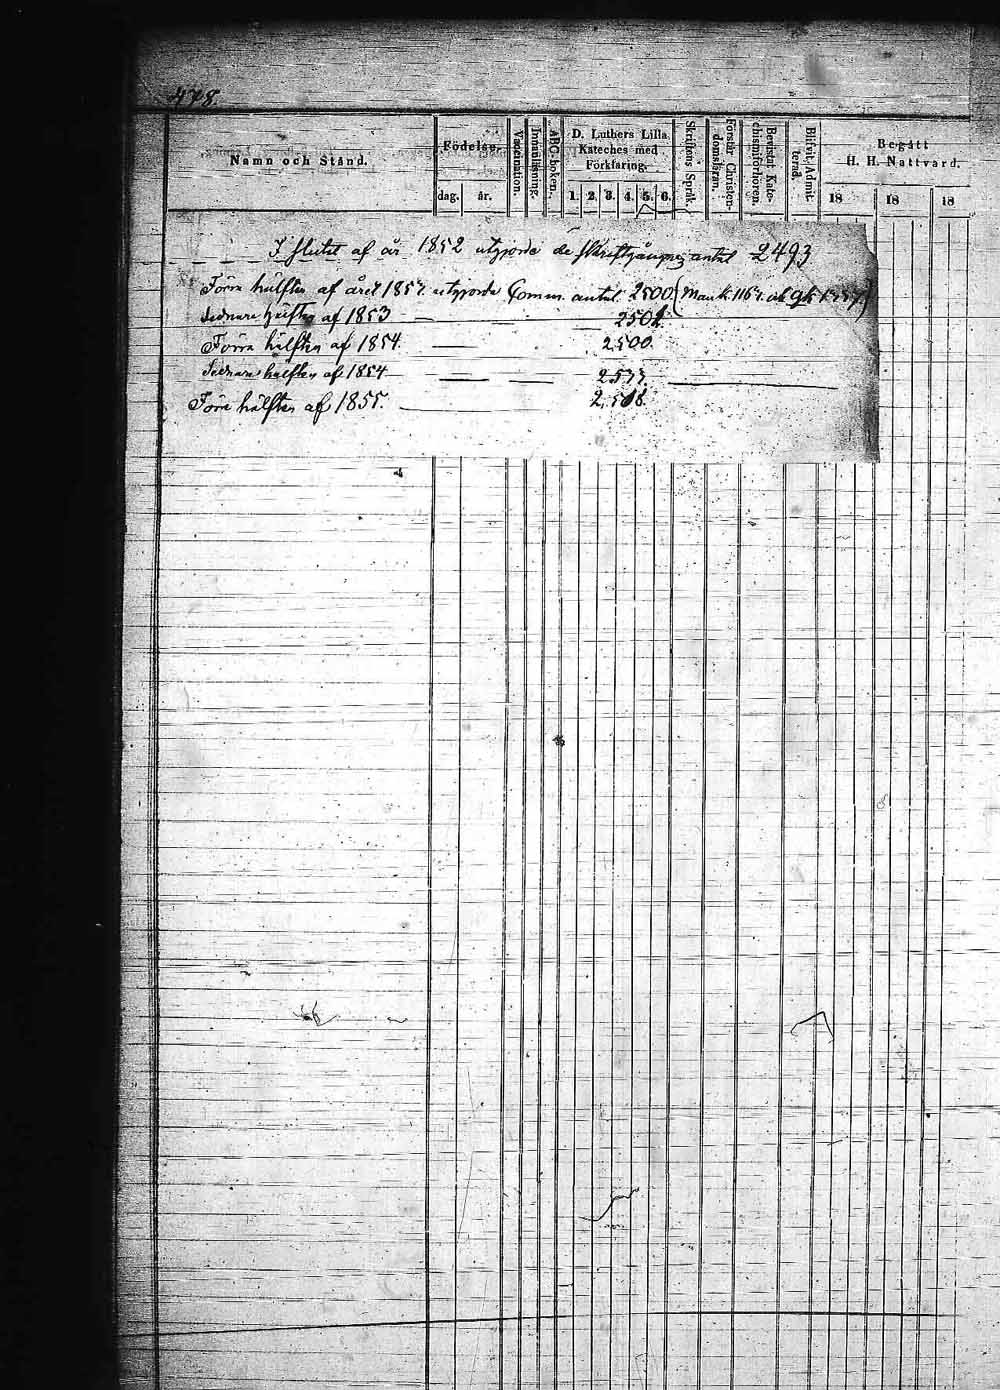 478.
Namn och Stånd.
Födelse-
dag. år.
Vaccination.
Innanläsning.
ABC-boken.
D. Luthers Lilla
Kateches med
Förklaring.
1. 2. 3. 4. 5. 6.
Skriftens Språk.
Förstår Christen-
domsläran.
Bevistat Kate-
chismiförhören.
Blifvit Admit-
terad.
Begått
H. H. Nattvard.
18 18 18
I slutet af år 1852 utgjorde de skriftgångnes antal 2493
Förra hälften af året 1853. utgjorde Comm. antal 2500. (Mank. 1167. och
Sednare hälften af 1853 — 2502
Förra hälften af 1854. — 2500.
Sednare hälften af 1854 — —
Förra hälften af 1855. — 2,508.